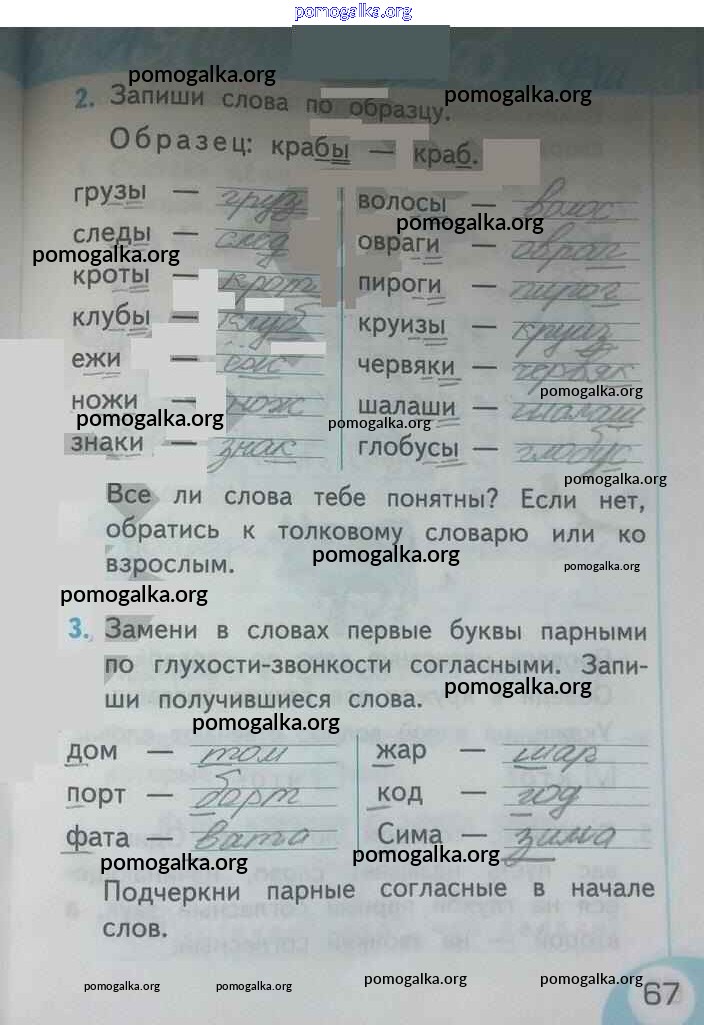 pomogalka.org
pomogalka.org
2. Запиши слова по образцу.
pomogalka.org
Образец: крабы — краб.
грузы — груз
волосы — волос
pomogalka.org
следы — след
овраги — овраг
pomogalka.org
кроты — крот
пироги — пирог
клубы — клуб
круизы — круиз
ежи — ёж
червяки — червяк
pomogalka.org
ножи — нож
шалаши — шалаш
pomogalka.org
pomogalka.org
знаки — знак
глобусы — глобус
pomogalka.org
Все ли слова тебе понятны? Если нет,
обратись к толковому словарю или ко
pomogalka.org
взрослым.
pomogalka.org
pomogalka.org
3. Замени в словах первые буквы парными
по глухости-звонкости согласными. Запи-
pomogalka.org
ши получившиеся слова.
pomogalka.org
дом — том
жар — шар
порт — борт
код — год
фата — вата
Сима — зима
pomogalka.org
pomogalka.org
Подчеркни парные согласные в начале
слов.
pomogalka.org
pomogalka.org
pomogalka.org
pomogalka.org
67